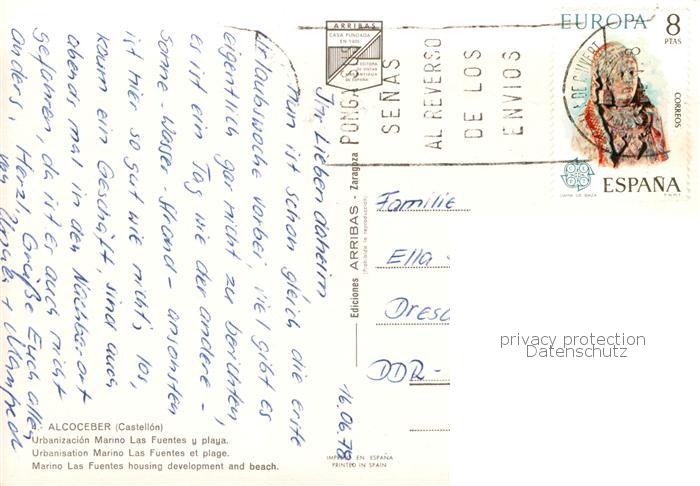 ARRIBAS
CASA FUNDADA
EN 1905
EDITORA
DE VISTAS
ESPAÑA
EUROPA 8
PTAS
CORREOS
ESPAÑA
DAMA DE BAZA F.N.M.T.
PONGA SUS
SEÑAS
AL REVERSO
DE LOS
ENVIOS
16.06.78
Ihr Lieben daheim
Nun ist schon gleich die erste
Urlaubswoche vorbei, viel gibt es
eigentlich gar nicht zu berichten,
es ist ein Tag wie der andere -
Sonne - Wasser - Strand - ansonsten
ist hier so gut wie nichts los,
kaum ein Geschäft sind auch
abends mal in den Nachbarort
gefahren, da ist es auch nicht
anders. Herzl. Grüße Euch allen
von Ursula + Manfred
Ediciones ARRIBAS - Zaragoza
(Prohibida la reproducción)
Familie
Ella
Dresd
DDR-
4.- ALCOCEBER (Castellón)
Urbanización Marino Las Fuentes y playa.
Urbanisation Marino Las Fuentes et plage.
Marino Las Fuentes housing development and beach.
IMPRESO EN ESPAÑA
PRINTED IN SPAIN
privacy protection
Datenschutz